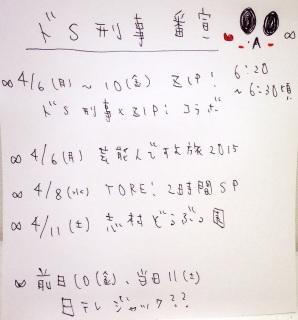 ドS刑事 番宣
∞ 4/6(月)〜10(金) ZIP! 6:20
ドS刑事×ZIP! コラボ 〜6:30頃
∞ 4/6(月) 芸能人ですよ旅2015
∞ 4/8(水) TORE! 2時間SP
∞ 4/11(土) 志村どうぶつ園
∞ 前日10(金)、当日11(土)
日テレジャック??